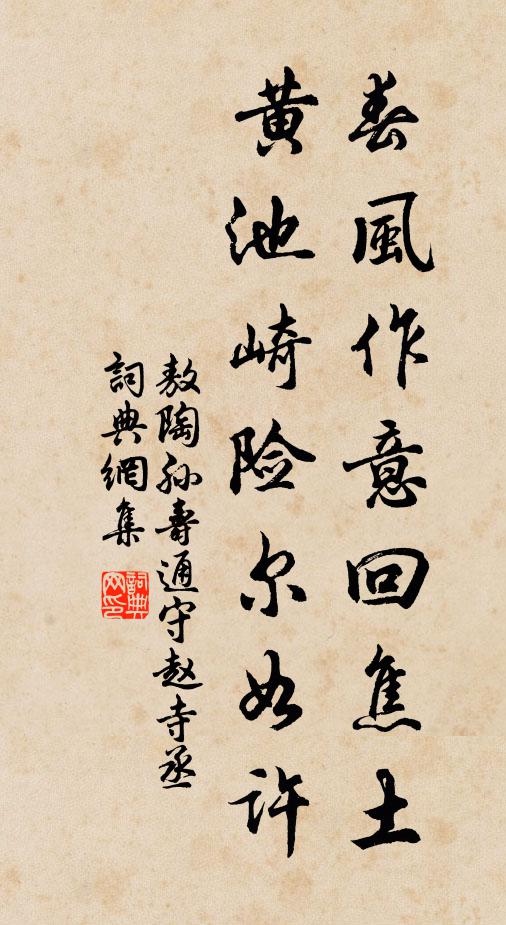 春風作意回焦土
黄池崎险尔如許
敖陶孙壽通守赵寺丞
詞典網集
詞典网印